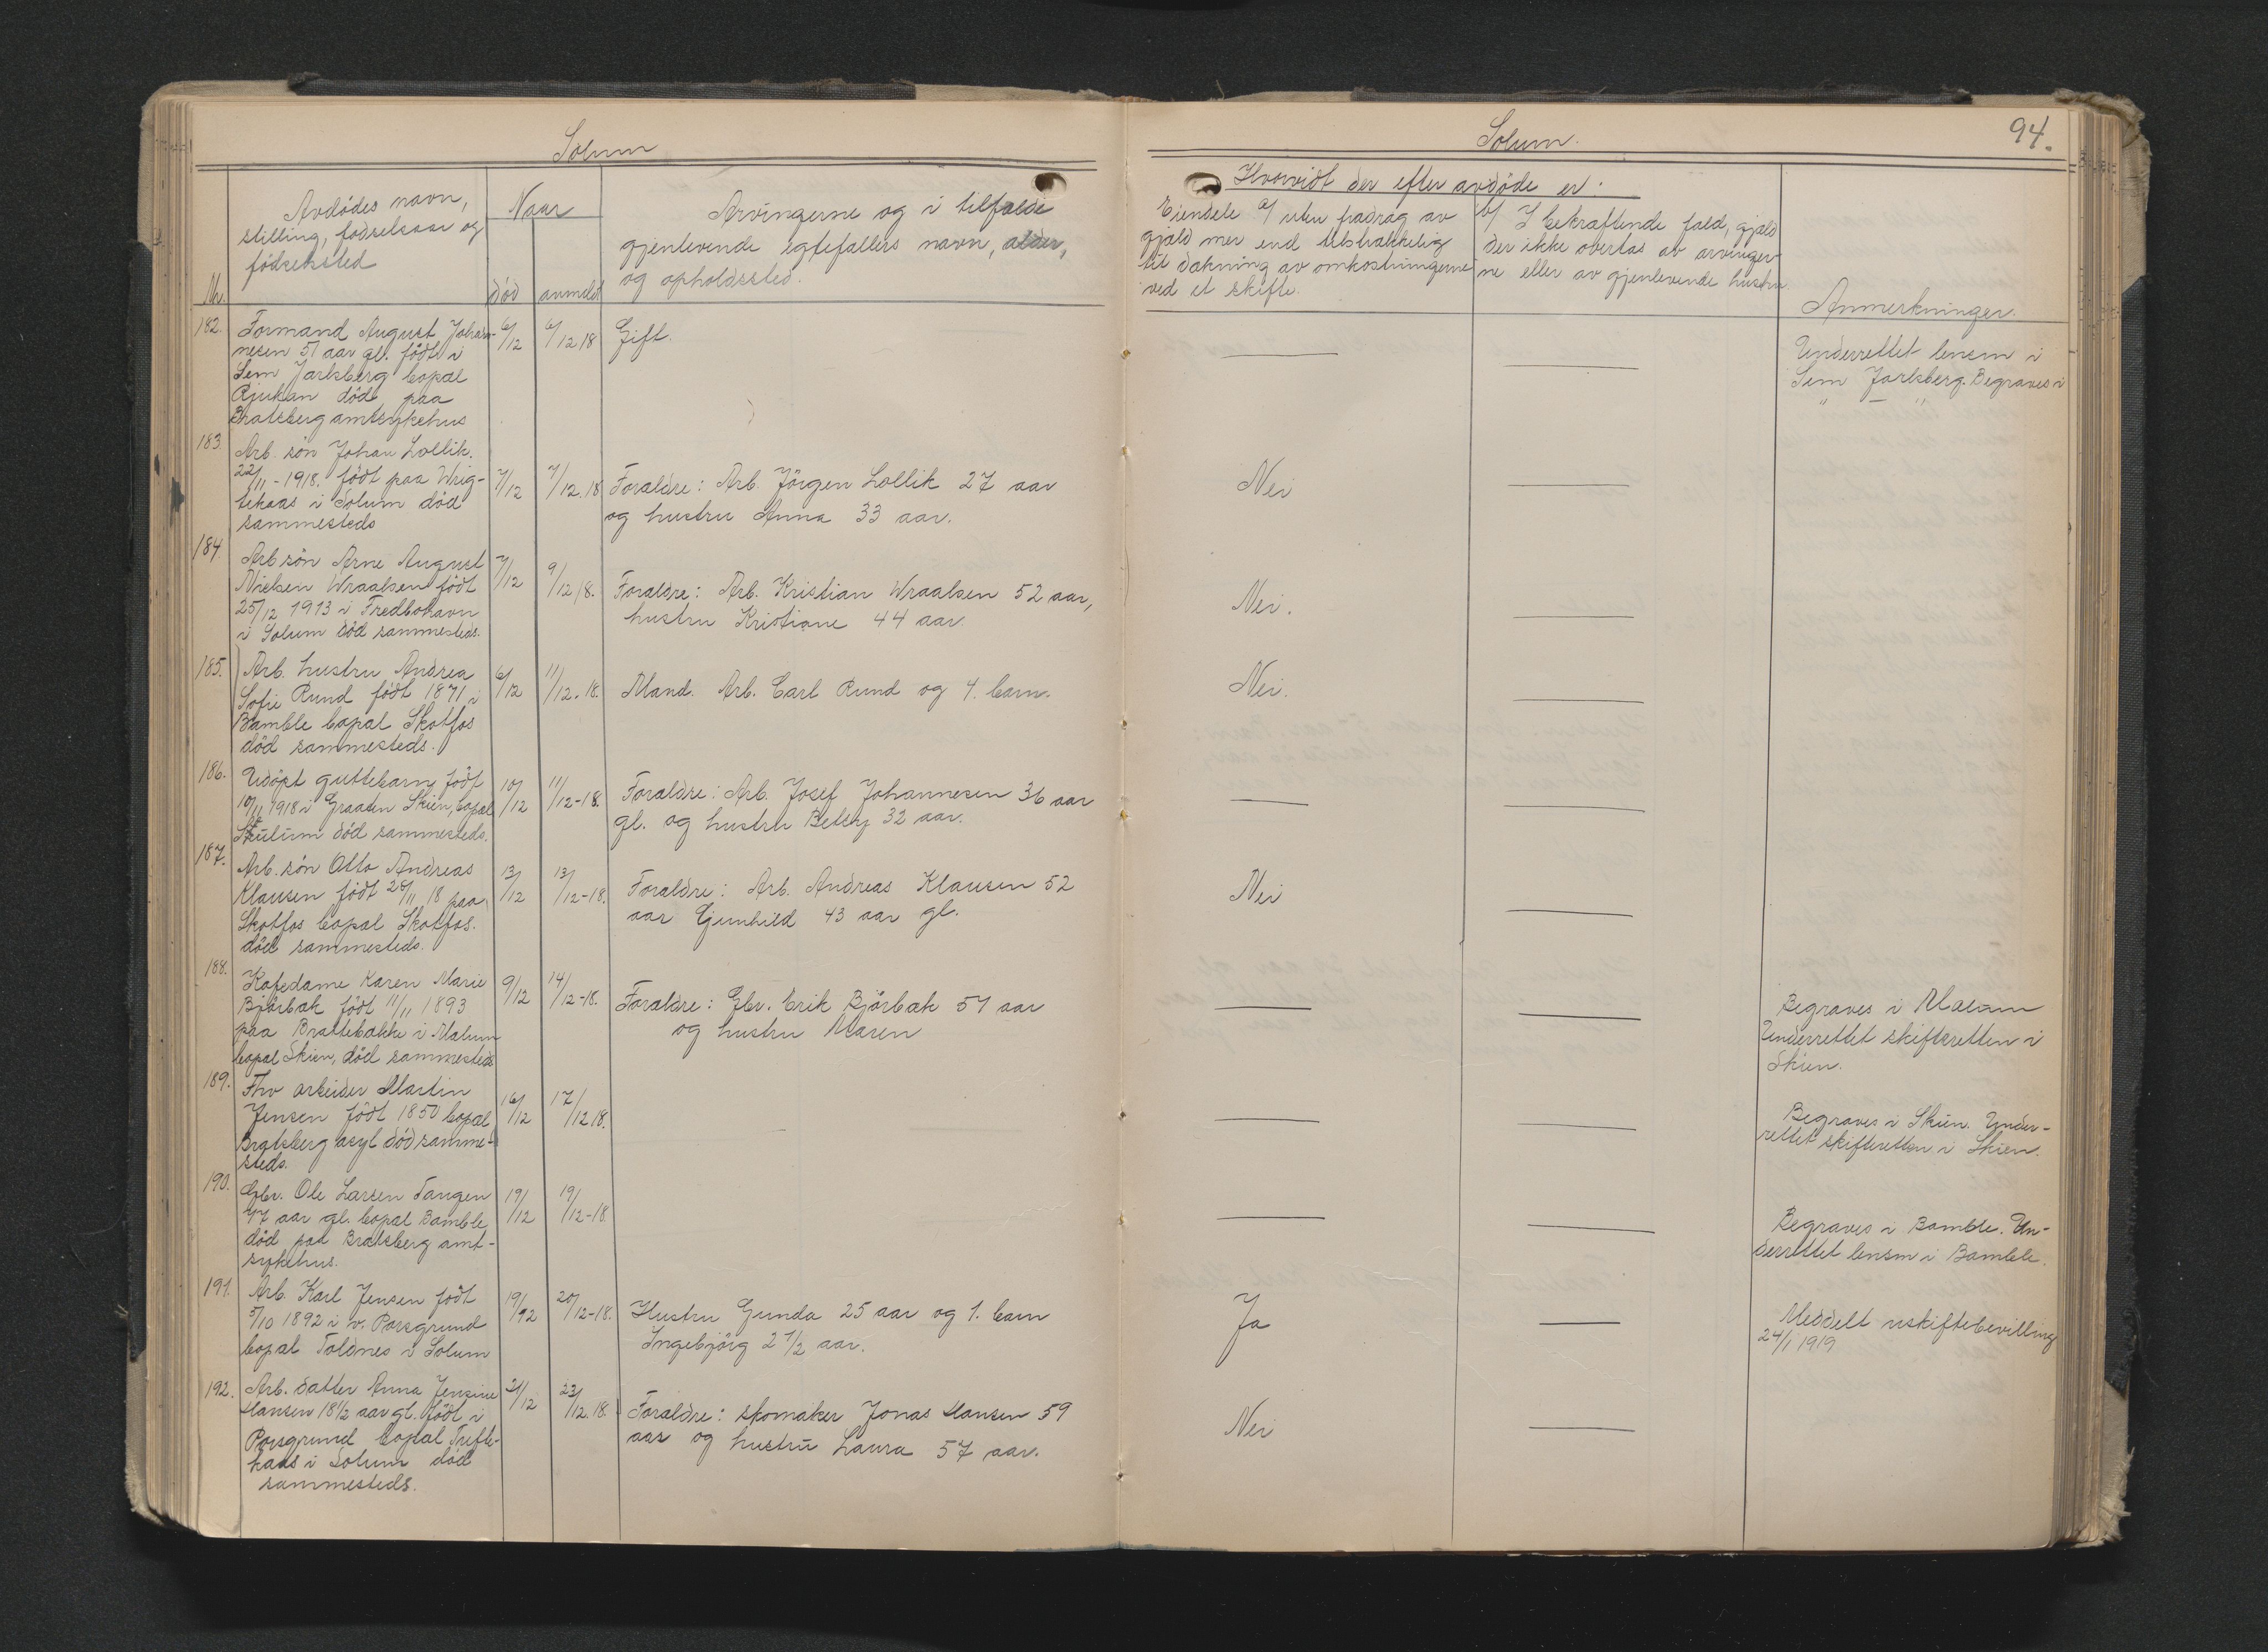 Solum
Avdödes navn,
stilling, födselsaar og
födselssted
Nr.
Naar
död
anmeldt
Arvingerne og i tilfælde
gjenlevende egtefællers navn, alder,
og opholdssted.
182.
Formand August Johan-
nesen 51 aar gl. födt i
Sem Jarlsberg bopæl
Rjukan död paa
Bratsberg amtsykehus
6/12
6/12 18
Gift.
183.
Arb. sön Johan Lollik.
22/11 - 1918. födt paa Wrig-
tekaas i Solum död
sammesteds
7/12
7/12.18
Forældre: Arb. Jörgen Lollik 27 aar
og hustru Anna 33 aar.
184.
Arb sön Arne August
Nielsen Wraalsen födt
25/12 1913 i Fredbohavn
i Solum död sammesteds.
7/12
9/12 18.
Forældre: Arb. Kristian Wraalsen 52 aar,
hustru Kristiane 44 aar.
185.
Arb. hustru Andrea
Sofie Rund födt 1871 i
Bamble bopæl Skotfos
död sammesteds.
6/12
11/12.18.
Mand. Arb. Carl Rund og 4. barn.
186.
Udöpt guttebarn födt
10/11 1918 i Graaten Skien, bopæl
Skulum död sammesteds.
10/12
11/12-18.
Forældre: Arb. Josef Johannesen 36 aar
gl. og hustru Betsy 32 aar.
187.
Arb. sön Otto Andreas
Klausen födt 28/11 18 paa
Skotfos bopæl Skotfos.
död sammesteds.
13/12
13/12-18.
Forældre: Arb. Andreas Klausen 52
aar Gunhild 43 aar gl.
188.
Kafedame Karen Marie
Bjørbæk födt 11/11 1893
paa Brattebakke i Mælum
bopæl Skien, död sammesteds
9/12
14/12-18.
Forældre: Gbr. Erik Bjørbæk 57 aar
og hustru Maren
189.
Fhv arbeider Martin
Jensen födt 1850 bopæl
Bratsberg asyl död samme-
steds.
16/12
17/12 18.
190.
Gbr. Ole Larsen Tangen
47 aar gl. bopæl Bamble
död paa Bratsberg amt-
sykehus.
19/12
19/12-18
191.
Arb. Karl Jensen födt
5/10 1892 i v. Porsgrund
bopæl Toldnes i Solum
19/12
20/12-18.
Hustru Gunda 25 aar og 1. barn
Ingebjörg 2 1/2 aar.
192.
Arb. datter Anna Jensine
Hansen 18 1/2 aar gl. födt i
Porsgrund bopæl Tufte-
kaas i Solum död
sammesteds.
21/12
23/12.18.
Forældre: skomaker Jonas Hansen 59
aar og hustru Laura 57 aar.
Solum.
94.
Hvorvidt der efter avdöde er:
Eiendele a/ uten fradrag av
gjæld mer end tilstrækkelig
til dækning av omkostningerne
ved et skifte.
b/ I bekræftende fald, gjæld
der ikke overtas av arvinger-
ne eller av gjenlevende hustru.
Anmerkninger.
Underrettet lensm i
Sem Jarlsberg. Begraves i
" — "
Nei
Nei.
Nei.
Nei
Begraves i Mælum
Underrettet skifteretten i
Skien.
Begraves i Skien. Under-
rettet skifteretten i Skien.
Begraves i Bamble. Un-
derrettet lensm i Bamble.
Ja
Meddelt uskiftebevilling
24/1 1919
Nei